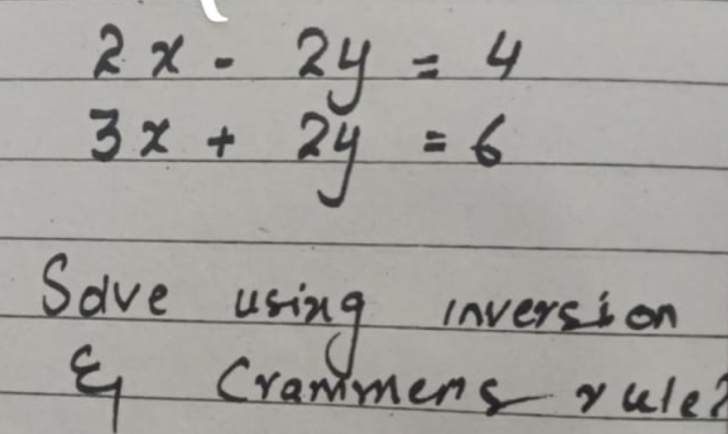 2x - 2y = 4
3x + 2y = 6
Solve using inversion
& Crammers rule?